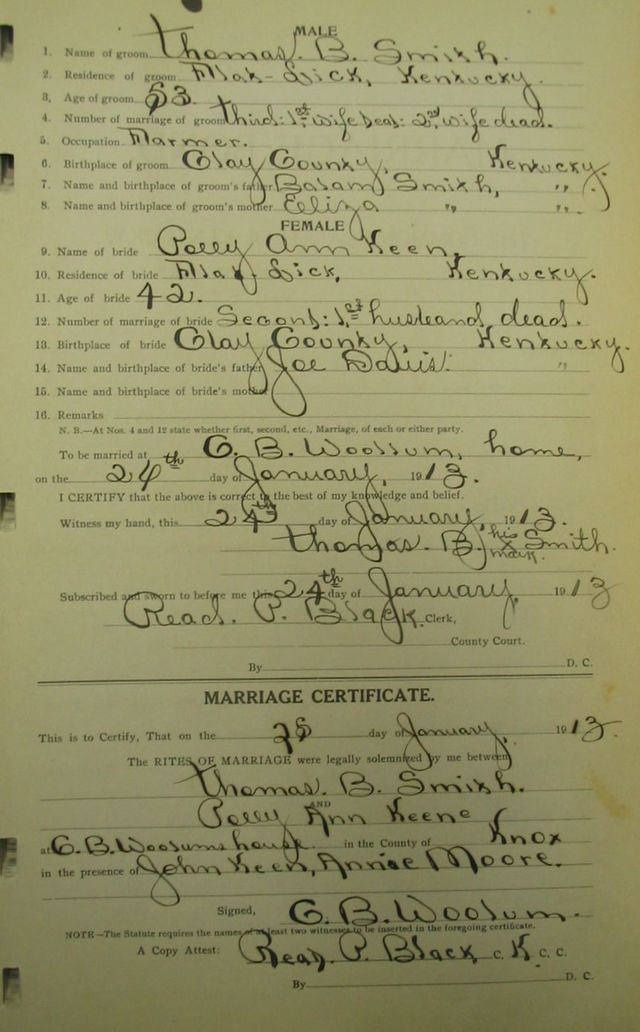 MALE
1. Name of groom Thomas. B. Smith.
2. Residence of groom Flat-Lick, Kentucky.
3. Age of groom 53.
4. Number of marriage of groom third: 1st wife dead: 2nd wife dead.
5. Occupation Farmer.
6. Birthplace of groom Clay County, Kentucky.
7. Name and birthplace of groom's father Balam Smith, " "
8. Name and birthplace of groom's mother Eliza " " " "
FEMALE
9. Name of bride Polly Ann Keen,
10. Residence of bride Flat Lick, Kentucky.
11. Age of bride 42.
12. Number of marriage of bride Second: 1st husband dead.
13. Birthplace of bride Clay County, Kentucky.
14. Name and birthplace of bride's father Joe Davis. "
15. Name and birthplace of bride's mother
16. Remarks
N. B.—At Nos. 4 and 12 state whether first, second, etc., Marriage, of each or either party.
To be married at G. B. Woosum, home,
on the 24th day of January, 1913.
I CERTIFY that the above is correct to the best of my knowledge and belief.
Witness my hand, this 24th day of January, 1913.
Thomas. B. his X mark. Smith.
Subscribed and sworn to before me this 24th day of January, 1913
Read. P. Black. Clerk,
County Court.
By D. C.
MARRIAGE CERTIFICATE.
This is to Certify, That on the 25 day of January, 1913.
The RITES OF MARRIAGE were legally solemnized by me between
Thomas. B. Smith.
AND
Polly Ann Keene
at G. B. Woosums house. in the County of Knox
in the presence of John Keen, Annie Moore.
Signed, G. B. Woosum.
NOTE—The Statute requires the names of at least two witnesses to be inserted in the foregoing certificate.
A Copy Attest: Read. P. Black C. K. C. C.
By D. C.